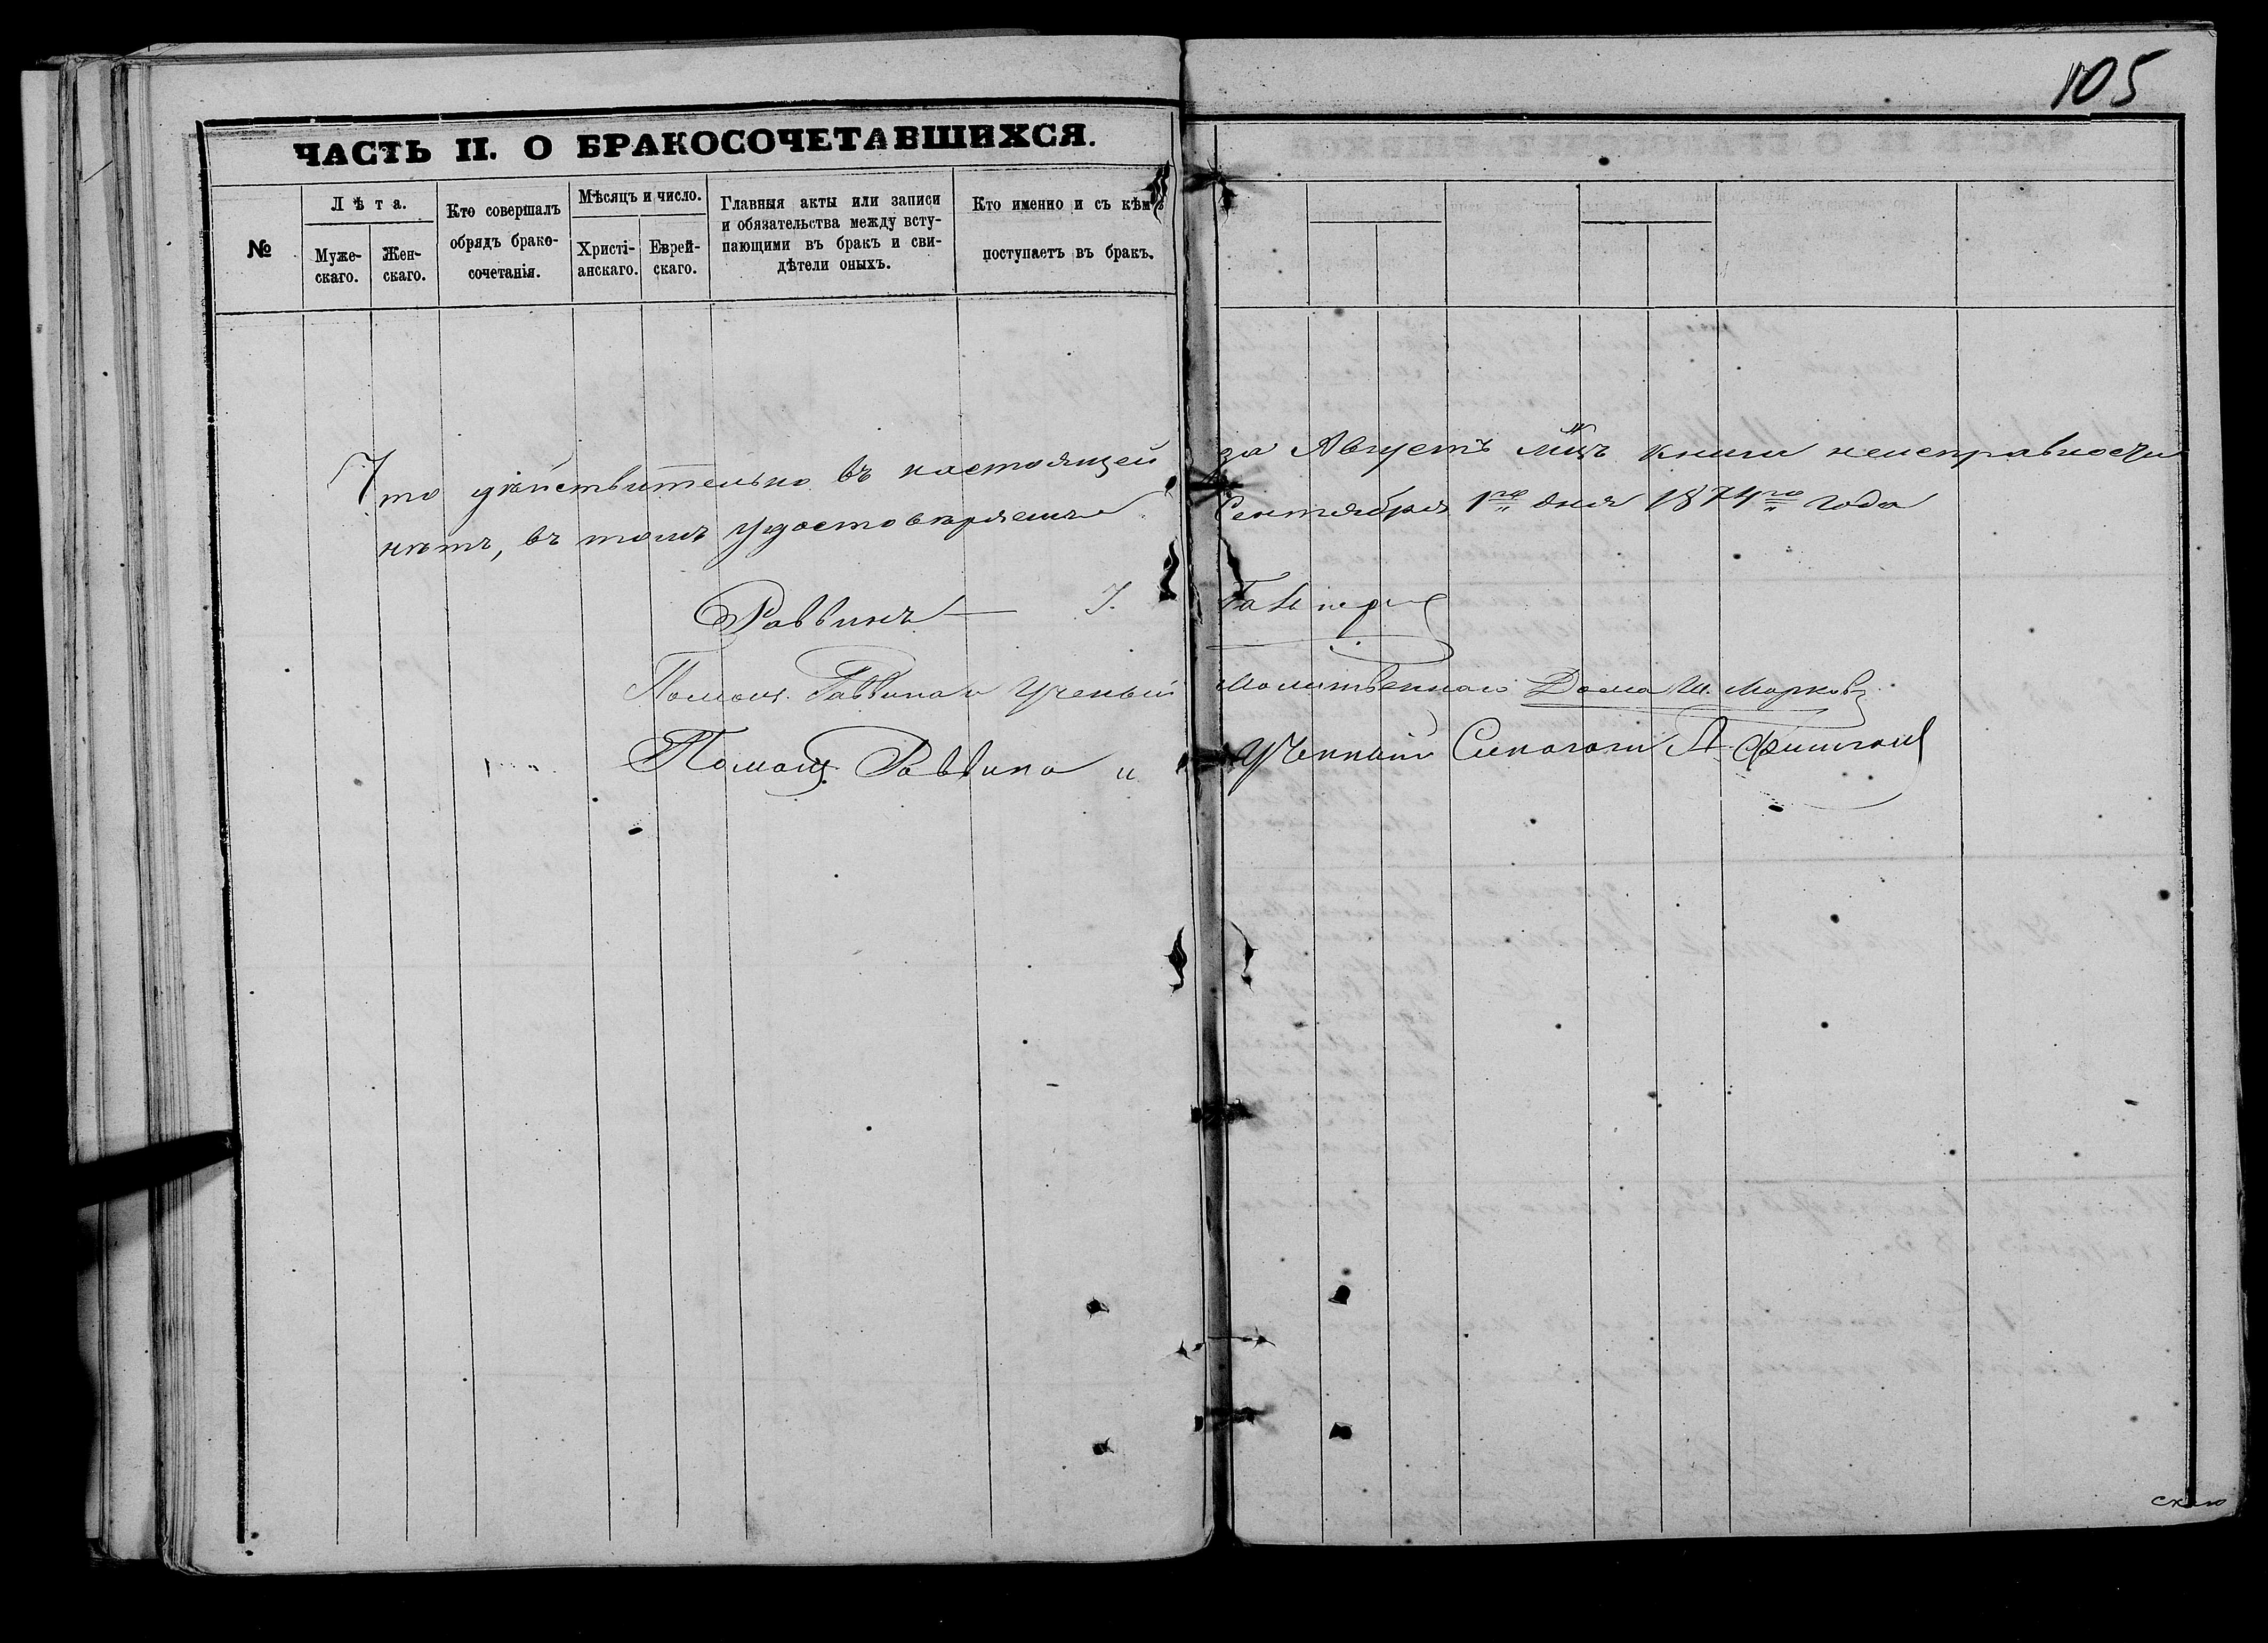 105
ЧАСТЬ II. О БРАКОСОЧЕТАВШИХСЯ.
№
Лѣта.
Муже-
скаго.
Жен-
скаго.
Кто совершалъ
обрядъ брако-
сочетанія.
Мѣсяцъ и число.
Христі-
анскаго.
Еврей-
скаго.
Главныя акты или записи
и обязательства между всту-
пающими въ бракъ и сви-
дѣтели оныхъ.
Кто именно и съ кѣмъ
поступаетъ въ бракъ.
Что дѣйствительно въ настоящей за Августъ мцъ книги неисправности
нѣтъ, въ томъ удостовѣряемъ Сентября 1го дня 1874го года
Раввинъ —
Помощ. Раввина и Ученый Молитвеннаго Дома Ш. Марковъ
Помощ. Раввина и Ученный Синагоги А. Фишман